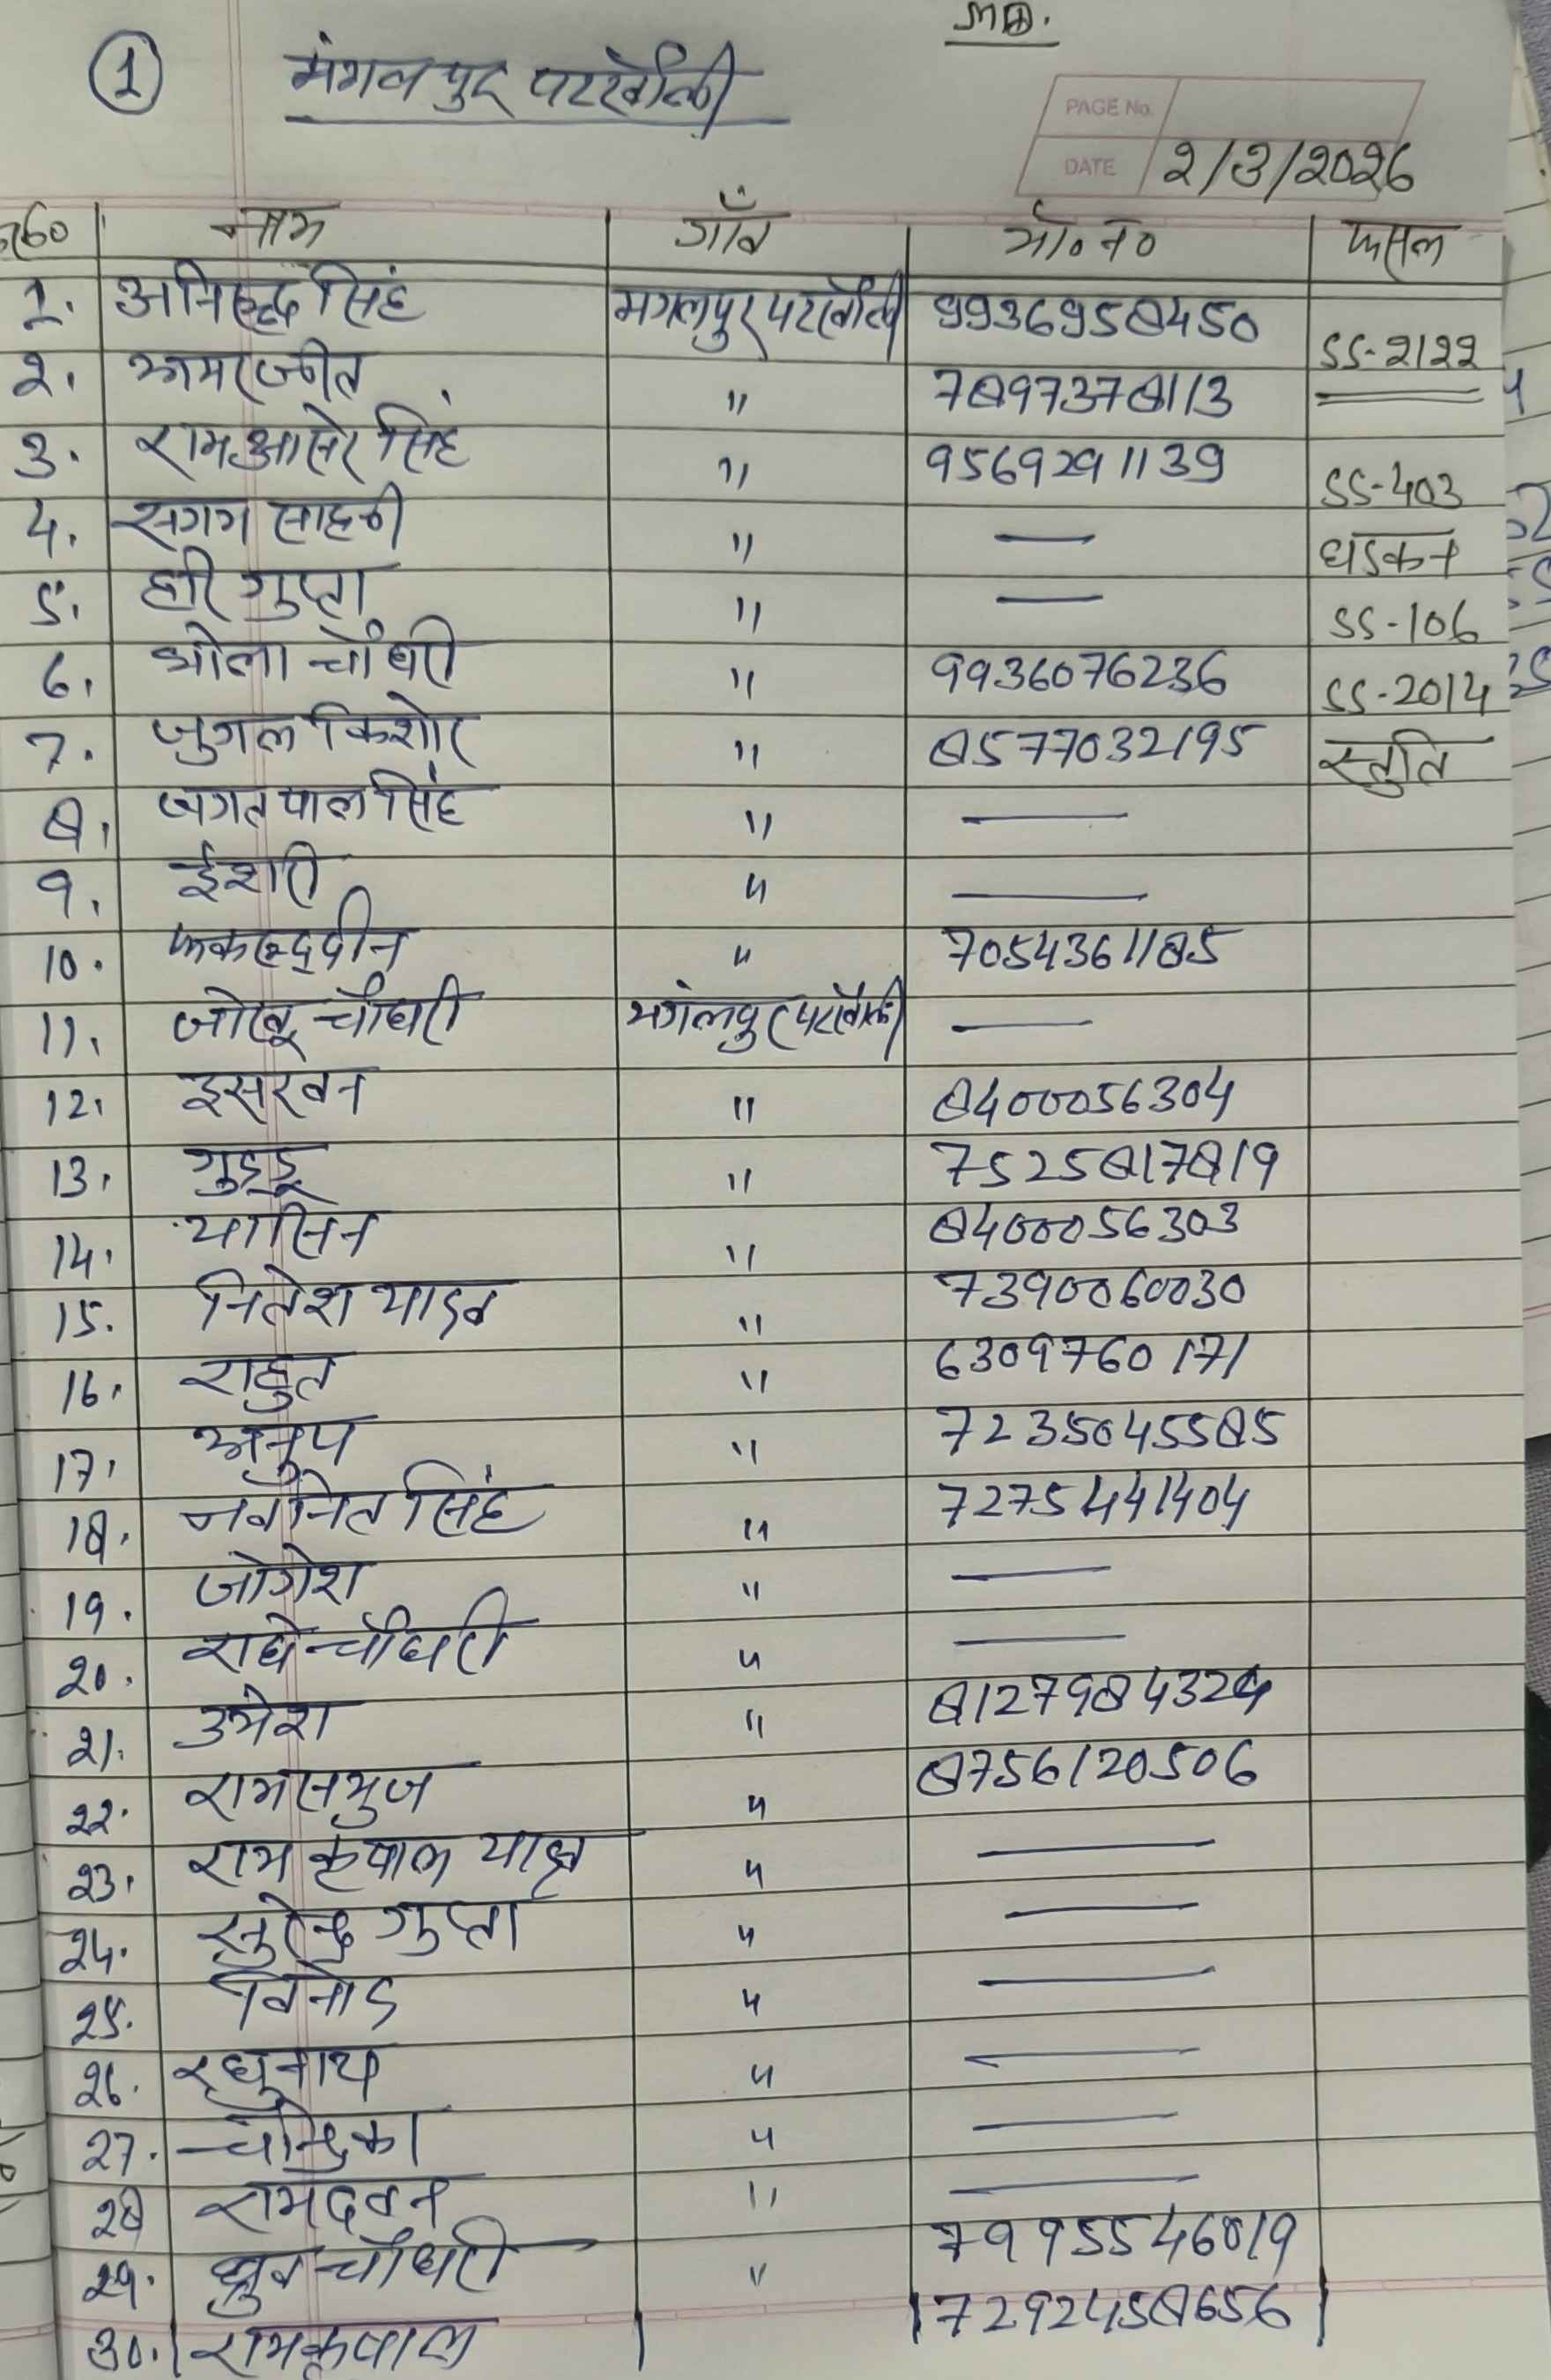 ① मंगलपुर परसौली
PAGE No.
DATE 2/3/2026
नाम गाँव मो० न० फसल
1. अनिरूद्ध सिंह मगलपुर परसौली 9936958450
SS-2122
2. अमरजीत " 7897378113
3. रामआसरे सिंह " 9569291139
SS-403
4. साहनी " —
धडकन
5. हरि गुप्ता " —
SS-106
6. भोला चौधरी " 9936076236
SS-2014
7. जुगल किशोर " 8577032195
स्तुति
8. जगतपाल सिंह " —
9. ईशरी " —
10. फकरूद्दीन " 7054361185
11. जोखू चौधरी मगंलपुर परसौली —
12. इसरवन " 8400056304
13. गुड्डू " 7525817819
14. यासिन " 8400056303
15. नितेश यादव " 7390060030
16. राहुल " 6309760171
17. अनुप " 7235045585
18. नवनित सिंह " 7275441404
19. जोगेश " —
20. राधे चौधरी " —
21. उमेश "
22. रामसमुज " 8756120506
23. राम कृपाल यादव " —
24. सुरेन्द्र गुप्ता " —
25. विनोद " —
26. रघुनाथ " —
27. चन्द्रिका " —
28 रामदवन " —
29. ध्रुव चौधरी "
30. रामकृपाल 7292458656